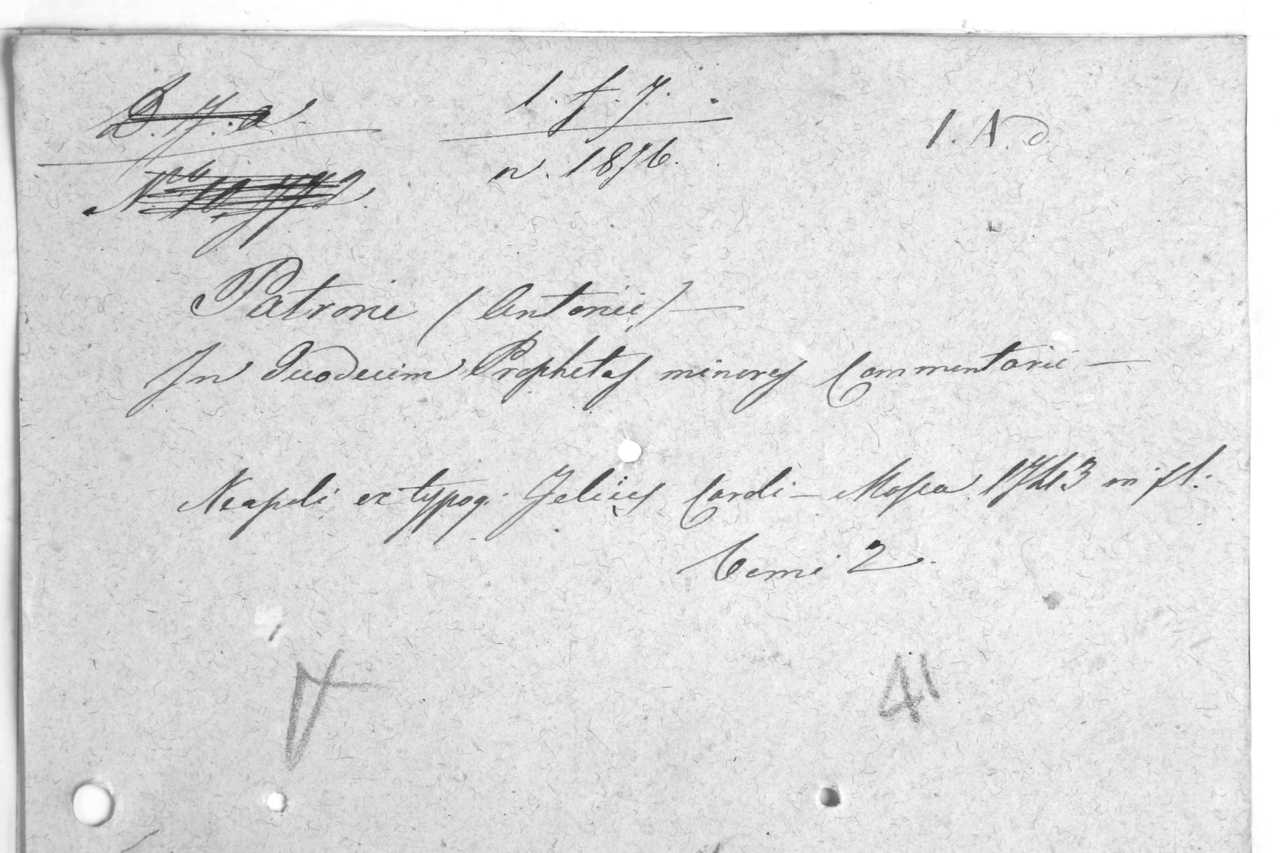 1. f. 7.
n. 1876.
1. A. d
Patroni (Antonii) —
In Duodecim Prophetas minores Commentarii —
Neapoli ex typog: Felicis Caroli — Mosca 1743 in fl:
Tomi 2.
41